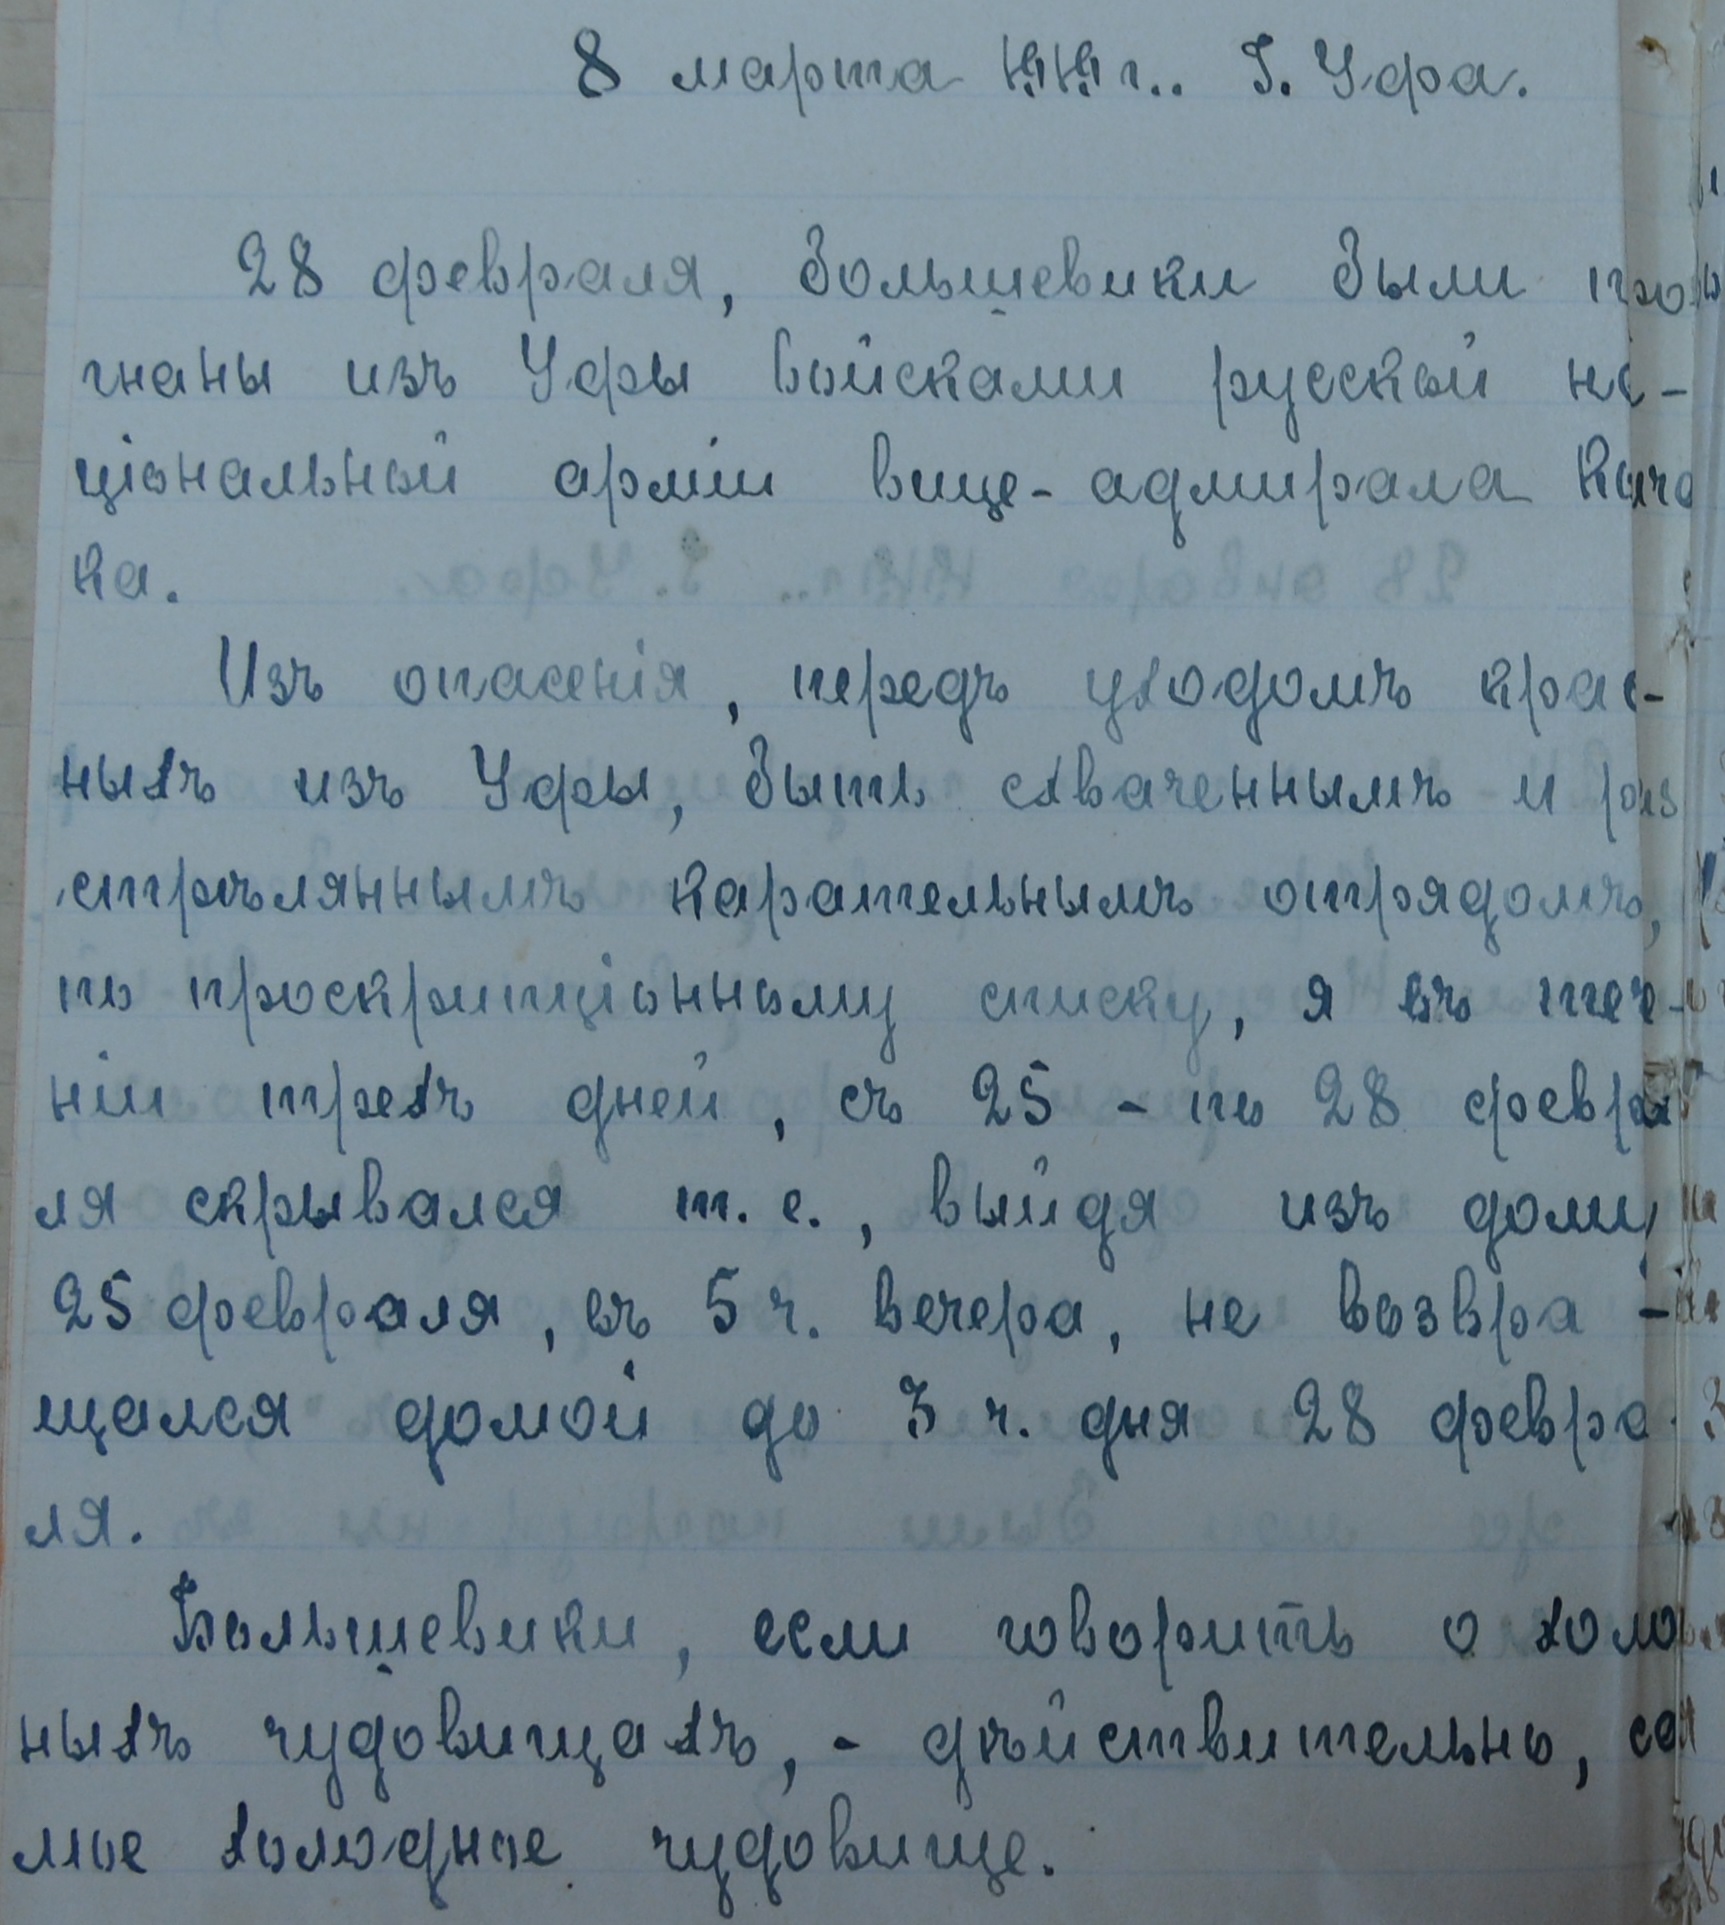 8 марта 1919 г.. Г. Уфа.
28 февраля, большевики были про
гнаны изъ Уфы войсками русской на-
ціональной арміи вице-адмирала Колча
ка.
Изъ опасенія, передъ уходомъ крас-
ныхъ изъ Уфы, быть схваченнымъ и раз
стрѣляннымъ карательнымъ отрядомъ,
по проскрипціонному списку, я въ тече-
ніи трехъ дней, съ 25 - по 28 февра
ля скрывался т. е., выйдя изъ дому
25 февраля, въ 5 ч. вечера, не возвра-
щался домой до 3 ч. дня 28 февра
ля.
Большевики, если говорить о холо
ныхъ чудовищахъ, - дѣйствительно, са
мое холодное чудовище.